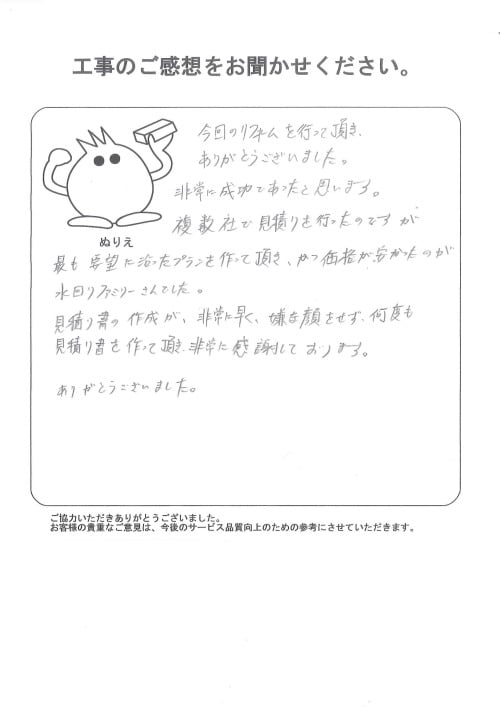 工事のご感想をお聞かせください。
今回のリフォームを行って頂き、
ありがとうございました。
非常に成功であったと思います。
複数社で見積りを行ったのですが
ぬりえ
最も要望に沿ったプランを作って頂き、かつ価格が安かったのが
水回りファミリーさんでした。
見積り書の作成が、非常に早く、嫌な顔をせず、何度も
見積り書を作って頂き、非常に感謝しております。
ありがとうございました。
ご協力いただきありがとうございました。
お客様の貴重なご意見は、今後のサービス品質向上のための参考にさせていただきます。